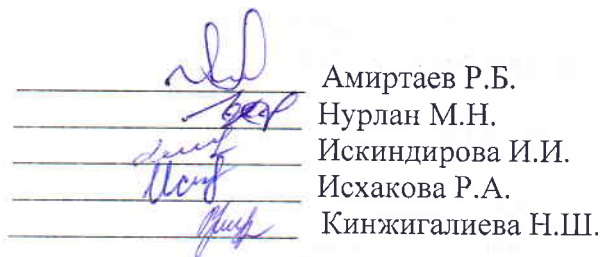 Амиртаев Р.Б.
Нурлан М.Н.
Искиндирова И.И.
Исхакова Р.А.
Кинжигалиева Н.Ш.